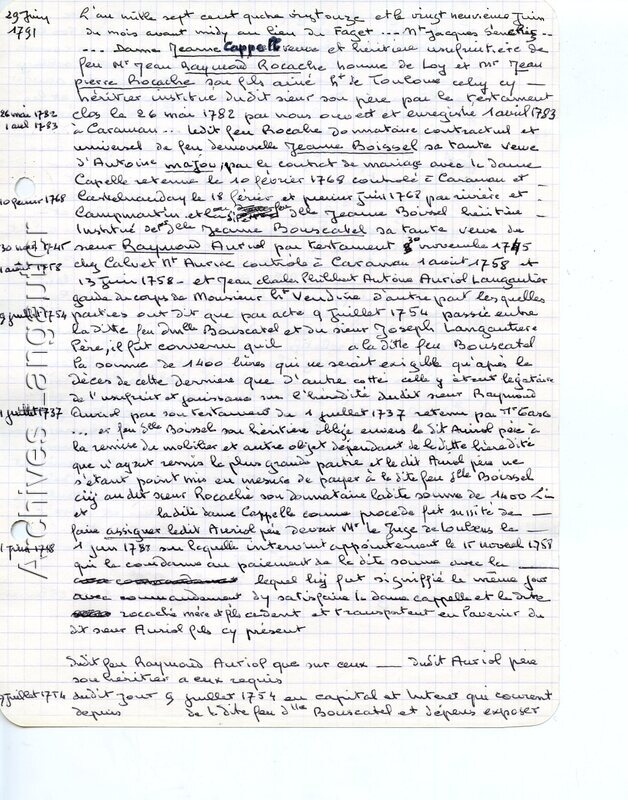 29 Juin L'an mille sept cent quatre vingt onze et le vingt neuvième Juin
1791 du mois avant midy au lieu du Faget ... Nre Jacques
... Dame Jeanne Cappelle veuve et héritière usufruitière de
feu Mr Jean Raymond Rocache homme de Loy et Mr Jean
pierre Rocache son fils ainé ht de Toulouse celuy cy —
héritier institué dudit sieur son père par le testament
26 mai 1782 clos le 26 mai 1782 par nous et enregistré 1 avril 1783
1 avril 1783 à Caraman ... ledit feu Rocache donnataire contractuel et
universel de feu demoiselle Jeanne Boissel sa tante veuve
d'Antoine majou, par le contrat de mariage avec la dame
Capelle retenu le 10 février 1768 controlé à Caraman et
10 février 1768 Castelnauday le 18 février et premier juin 1768 par rivière et
Campmartin et dlle Jeanne Boissel héritière
Institué de dlle Jeanne Bouscatel sa tante veuve de
30 sieur Raymond Auriol par testament 30 novembre 1745
1 août 1758 chez Calvet Nre Auriac controlé à Caraman 1 août 1758 et
13 Juin 1758 — et Jean charles Philibert Antoine Auriol Langautier
garde du corps de Monsieur ht Vendine d'autre part lesquelles
9 juillet 1754 parties ont dit que par acte 9 Juillet 1754 passée entre
la ditte feu dmlle Bouscatel et du sieur Joseph Langautier
Père, il fut convenu quil a la ditte feu Bouscatel
la somme de 1400 livres qui ne serait exigible qu'après le
décès de cette dernière que d'autre cotté celle y étant légataire
de l'usufruit et jouissance sur l'hérédité dudit sieur Raymond
1 juillet 1737 Auriol par son testament du 1 juillet 1737 retenu par Me Gasc
... et feu dlle Boissel son héritière obligé envers le dit Auriol père à
la remise du mobilier et autre objet dépendant de laditte hérédité
que n'ayant remis la plus grande partie et le dit Auriol père ne
s'étant point mis en mesure de payer à ladite feu dlle Boissel
au dit sieur Rocache son donnataire ladite somme de 1400 L
et ladite dame Cappelle comme procède fut su site de —
faire assigner ledit Auriol père devant Mr le Juge de Loubens le —
1 juin 1758 1 juin 1788 sur laquelle intervint appointement le 15 novembre 1758
qui le condamne au paiement de la dite somme avec la
lequel fut signiffié le même jour
avec commandement dy satisfaire la dame cappelle et le dit
rocache mère et fils cedent et transportent en faveur du
dit sieur Auriol fils cy présent
dudit feu Raymond Auriol que sur ceux — dudit Auriol père
son héritier a eux requis
9 juillet 1754 dudit jour 9 juillet 1754 en capital et Interet qui courent
depuis de ladite feu dlle Bouscatel et dépens exposer
Archives-Langautier